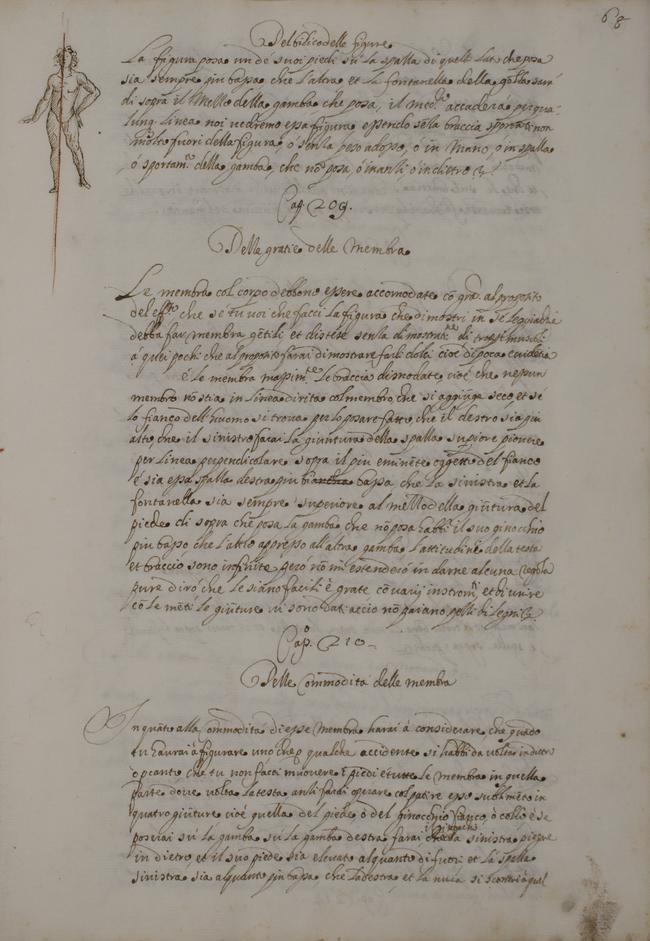 68
Del bilico delle figure
La figura posa un de suoi piedi su la spalla di quell lato che posa
sia sempre piu bassa che l'altra et la fontanella della gola sara
di sopra il mezzo della gamba che posa, il accadera per qua-
lunq. linea noi vedremo essa figura essendo senza braccia non
molto fuori della figura, ò senza peso adosso, ò in mano, o in spalla
ò sportam.to della gamba, che nõ posa, ò inanzi ò indietro
Cap. 209.
Delle gratie delle Membra
Le membra col corpo debbono essere accomodate cõ gra. al proposito
del eff.to che se tu voi che facci la figura che dimostri in se leggiadria
debba far membra gentili et distese senza di troppi muscoli
à quei pochi che al proposito farai dimostrare farli dolci cioè di poca evidenza
è le membra massim.te le braccia disnodate, cioè che nessun
membro nõ stia in linea diritta col membro, che si aggiunga seco, et se
lo fianco dell'huomo si trova per lo posare fatto, che il destro sia piu
alto, che il sinistro farai la giuntura della spalla supiore piovere
per linea perpendicolare sopra il piu eminẽte oggetto del fianco
è sia essa spalla destra piu bassa che la sinistra et la
fontanella sia sempre superiore al mezzo della giũtura del
piede di sopra che posa la gamba che nõ posa habbi il suo ginocchio
piu basso che l'altro appresso all'altra gamba l'attitudine della testa
et braccio sono infinite però nõ mi estenderò in darne alcuna regola
pure dirò che le siano facili è grate cõ varij et di
cõ le giũture vi sono dat. accio nõ paiano pezzi di legni &.
Cap. 210
Delle commodita delle membra
In quãto alla commodità di esse membra harai à considerare che quãdo
tu haurai à figurare uno che p qualche accidente si habbi da voltar indietro
ò p canto che tu non facci muovere i piedi et tutte le membra in quella
parte dove volta la testa anzi farai operare col partire esso in
quatro giũture cioè quella del piede ò del ginocchio fianco, ò collo è se
poserai sù la gamba sù la gamba destra farai il ginochio della sinistra piegare
in dietro, et il suo piede sia elevato alquanto di fuori et la spalla
sinistra sia alquanto piu bassa che la destra, et la nuca si scontri à quel